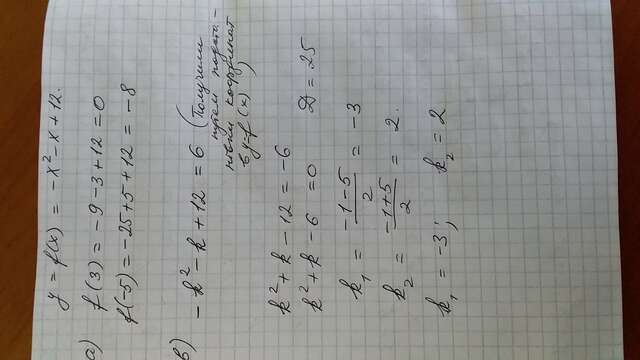 y = f(x) = -x² - x + 12.
а) f(3) = -9 - 3 + 12 = 0
f(-5) = -25 + 5 + 12 = -8
в) -k² - k + 12 = 6 (Получили
путем подста-
новки координат
в y=f(x))
k² + k - 12 = -6
k² + k - 6 = 0 D = 25
k₁ = (-1-5)/2 = -3
k₂ = (-1+5)/2 = 2.
k₁ = -3; k₂ = 2